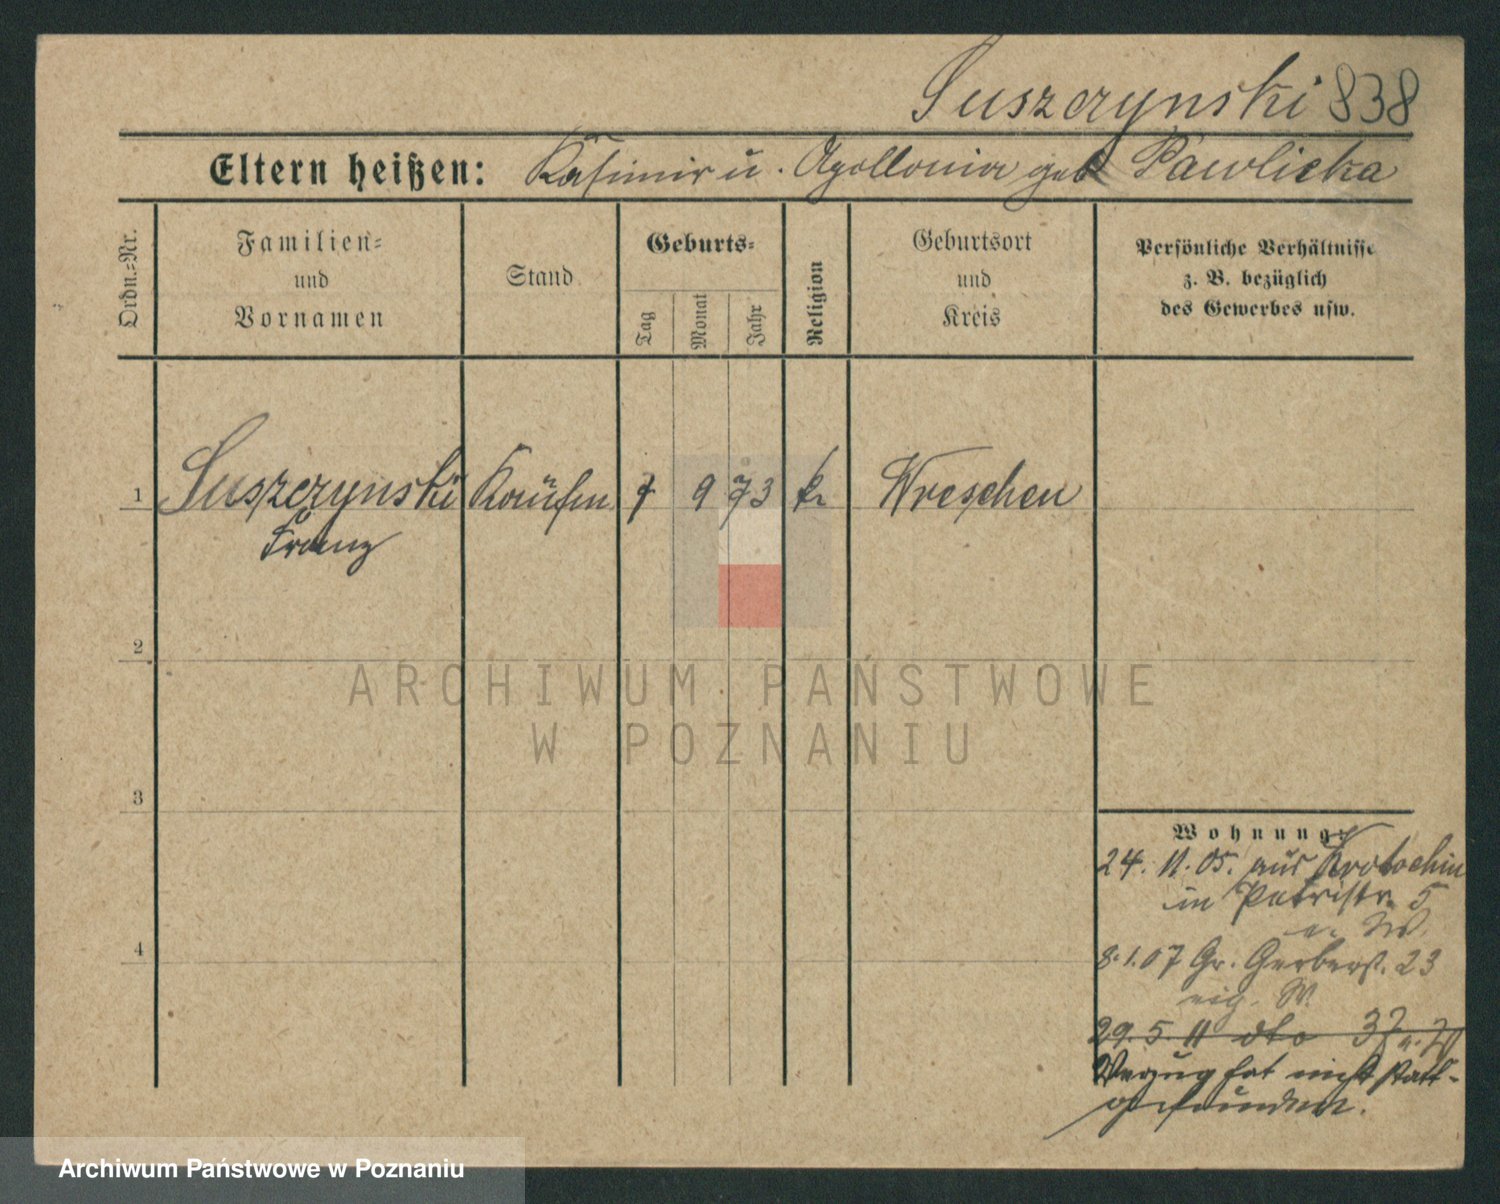 Suszczynski 838
Eltern heißen: Kasimir u. Apollonia geb Pawlicka
Ordn.-Nr.
Familien-
und
Vornamen
Stand
Geburts-
Tag
Monat
Jahr
Religion
Geburtsort
und
Kreis
Persönliche Verhältnisse
z. B. bezüglich
des Gewerbes usw.
1 Suszczynski Kaufm. 9 73 k. Wreschen
Franz
2
ARCHIWUM PAŃSTWOWE
W POZNANIU
3
Wohnung:
24. 11. 05. aus Krotochin
in Patristr. 5
e. W.
4
8. 1. 07 Gr. Gerberst. 23
eig. W.
29. 5. 11 dto 37 e. W
Verzug hat nicht statt-
gefunden.
Archiwum Państwowe w Poznaniu